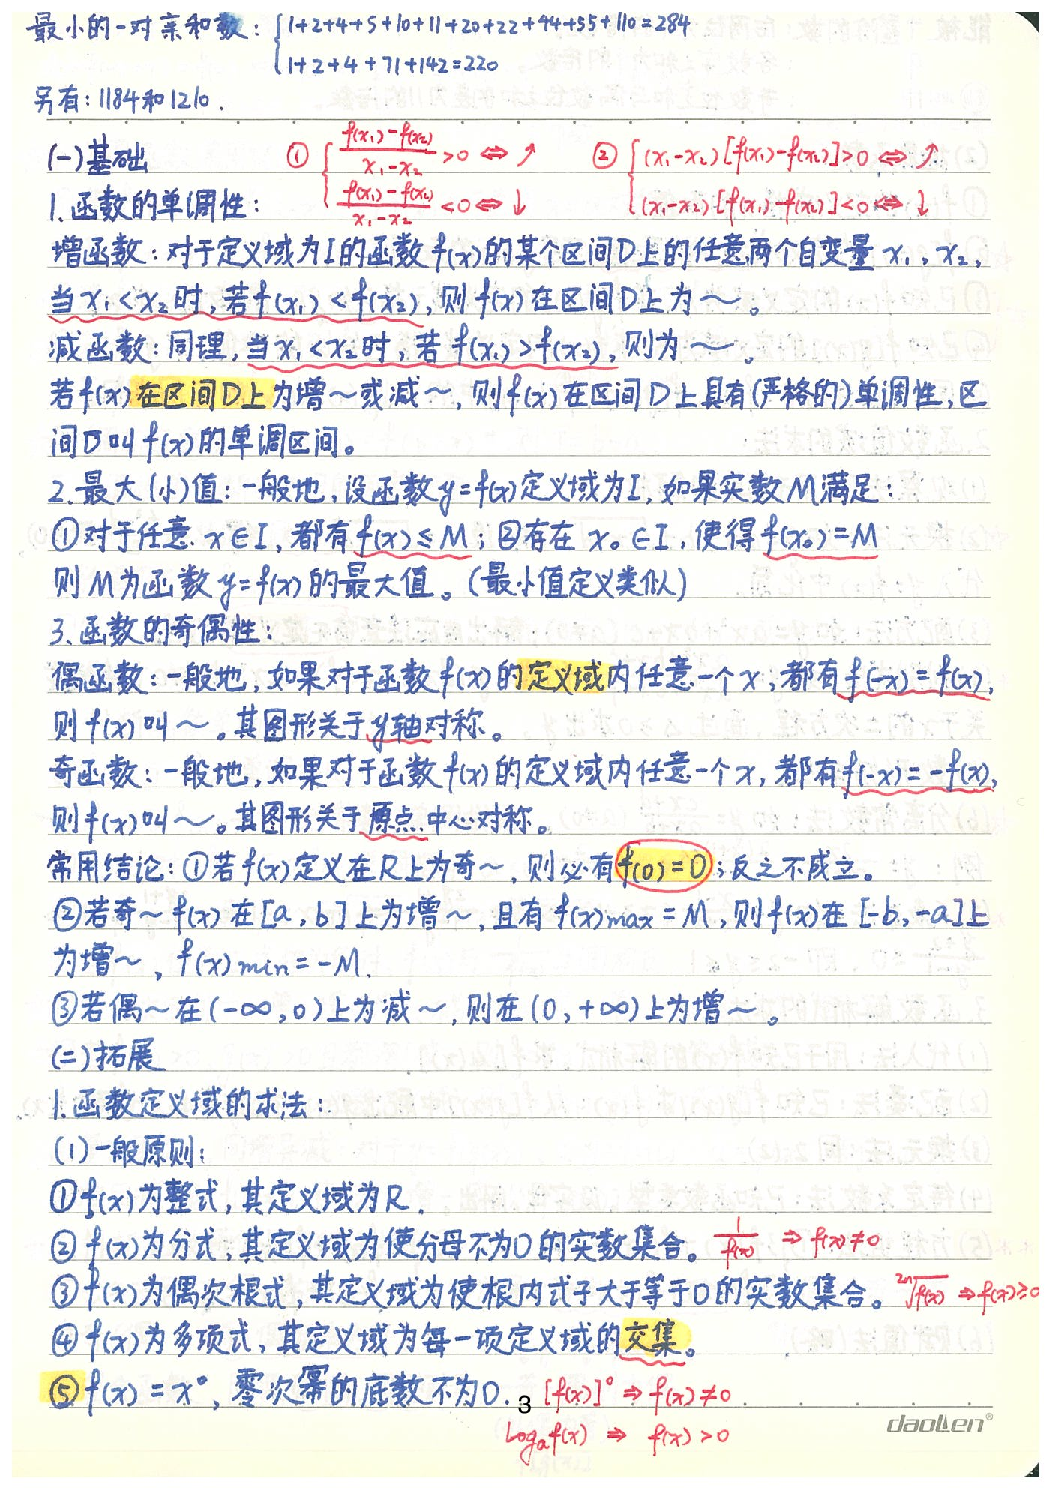 最小的一对亲和数: { 1+2+4+5+10+11+20+22+44+55+110=284
1+2+4+71+142=220
另有: 1184和1210.
(一)基础 ① { f(x₁)-f(x₂) / x₁-x₂ >0 ⇔ ↗ ② { (x₁-x₂)[f(x₁)-f(x₂)]>0 ⇔ ↗
1.函数的单调性: f(x₁)-f(x₂) / x₁-x₂ <0 ⇔ ↓ (x₁-x₂)[f(x₁)-f(x₂)]<0 ⇔ ↓
增函数: 对于定义域为I的函数f(x)的某个区间D上的任意两个自变量 x₁、x₂,
当x₁<x₂时,若f(x₁)<f(x₂),则f(x)在区间D上为~。
减函数: 同理,当x₁<x₂时,若f(x₁)>f(x₂),则为~。
若f(x)在区间D上为增~或减~,则f(x)在区间D上具有(严格的)单调性,区
间D叫f(x)的单调区间。
2.最大(小)值: 一般地,设函数y=f(x)定义域为I,如果实数M满足:
①对于任意x∈I,都有f(x)≤M; ②存在x₀∈I,使得f(x₀)=M
则M为函数y=f(x)的最大值。(最小值定义类似)
3.函数的奇偶性:
偶函数: 一般地,如果对于函数f(x)的定义域内任意一个x,都有f(-x)=f(x),
则f(x)叫~。其图形关于y轴对称。
奇函数: 一般地,如果对于函数f(x)的定义域内任意一个x,都有f(-x)=-f(x),
则f(x)叫~。其图形关于原点中心对称。
常用结论: ①若f(x)定义在R上为奇~,则必有f(0)=0;反之不成立。
②若奇~f(x)在[a,b]上为增~,且有f(x)max=M,则f(x)在[-b,-a]上
为增~,f(x)min=-M.
③若偶~在(-∞,0)上为减~,则在(0,+∞)上为增~。
(二)拓展
1.函数定义域的求法:
(1)一般原则:
①f(x)为整式,其定义域为R.
②f(x)为分式,其定义域为使分母不为0的实数集合。 1/f(x) ⇒ f(x)≠0
③f(x)为偶次根式,其定义域为使根内式子大于等于0的实数集合。 ²ⁿ√f(x) ⇒f(x)≥0
④f(x)为多项式,其定义域为每一项定义域的交集。
⑤f(x)=x⁰,零次幂的底数不为0. 3 [f(x)]⁰ ⇒ f(x)≠0
daolen®
Logₐf(x) ⇒ f(x)>0